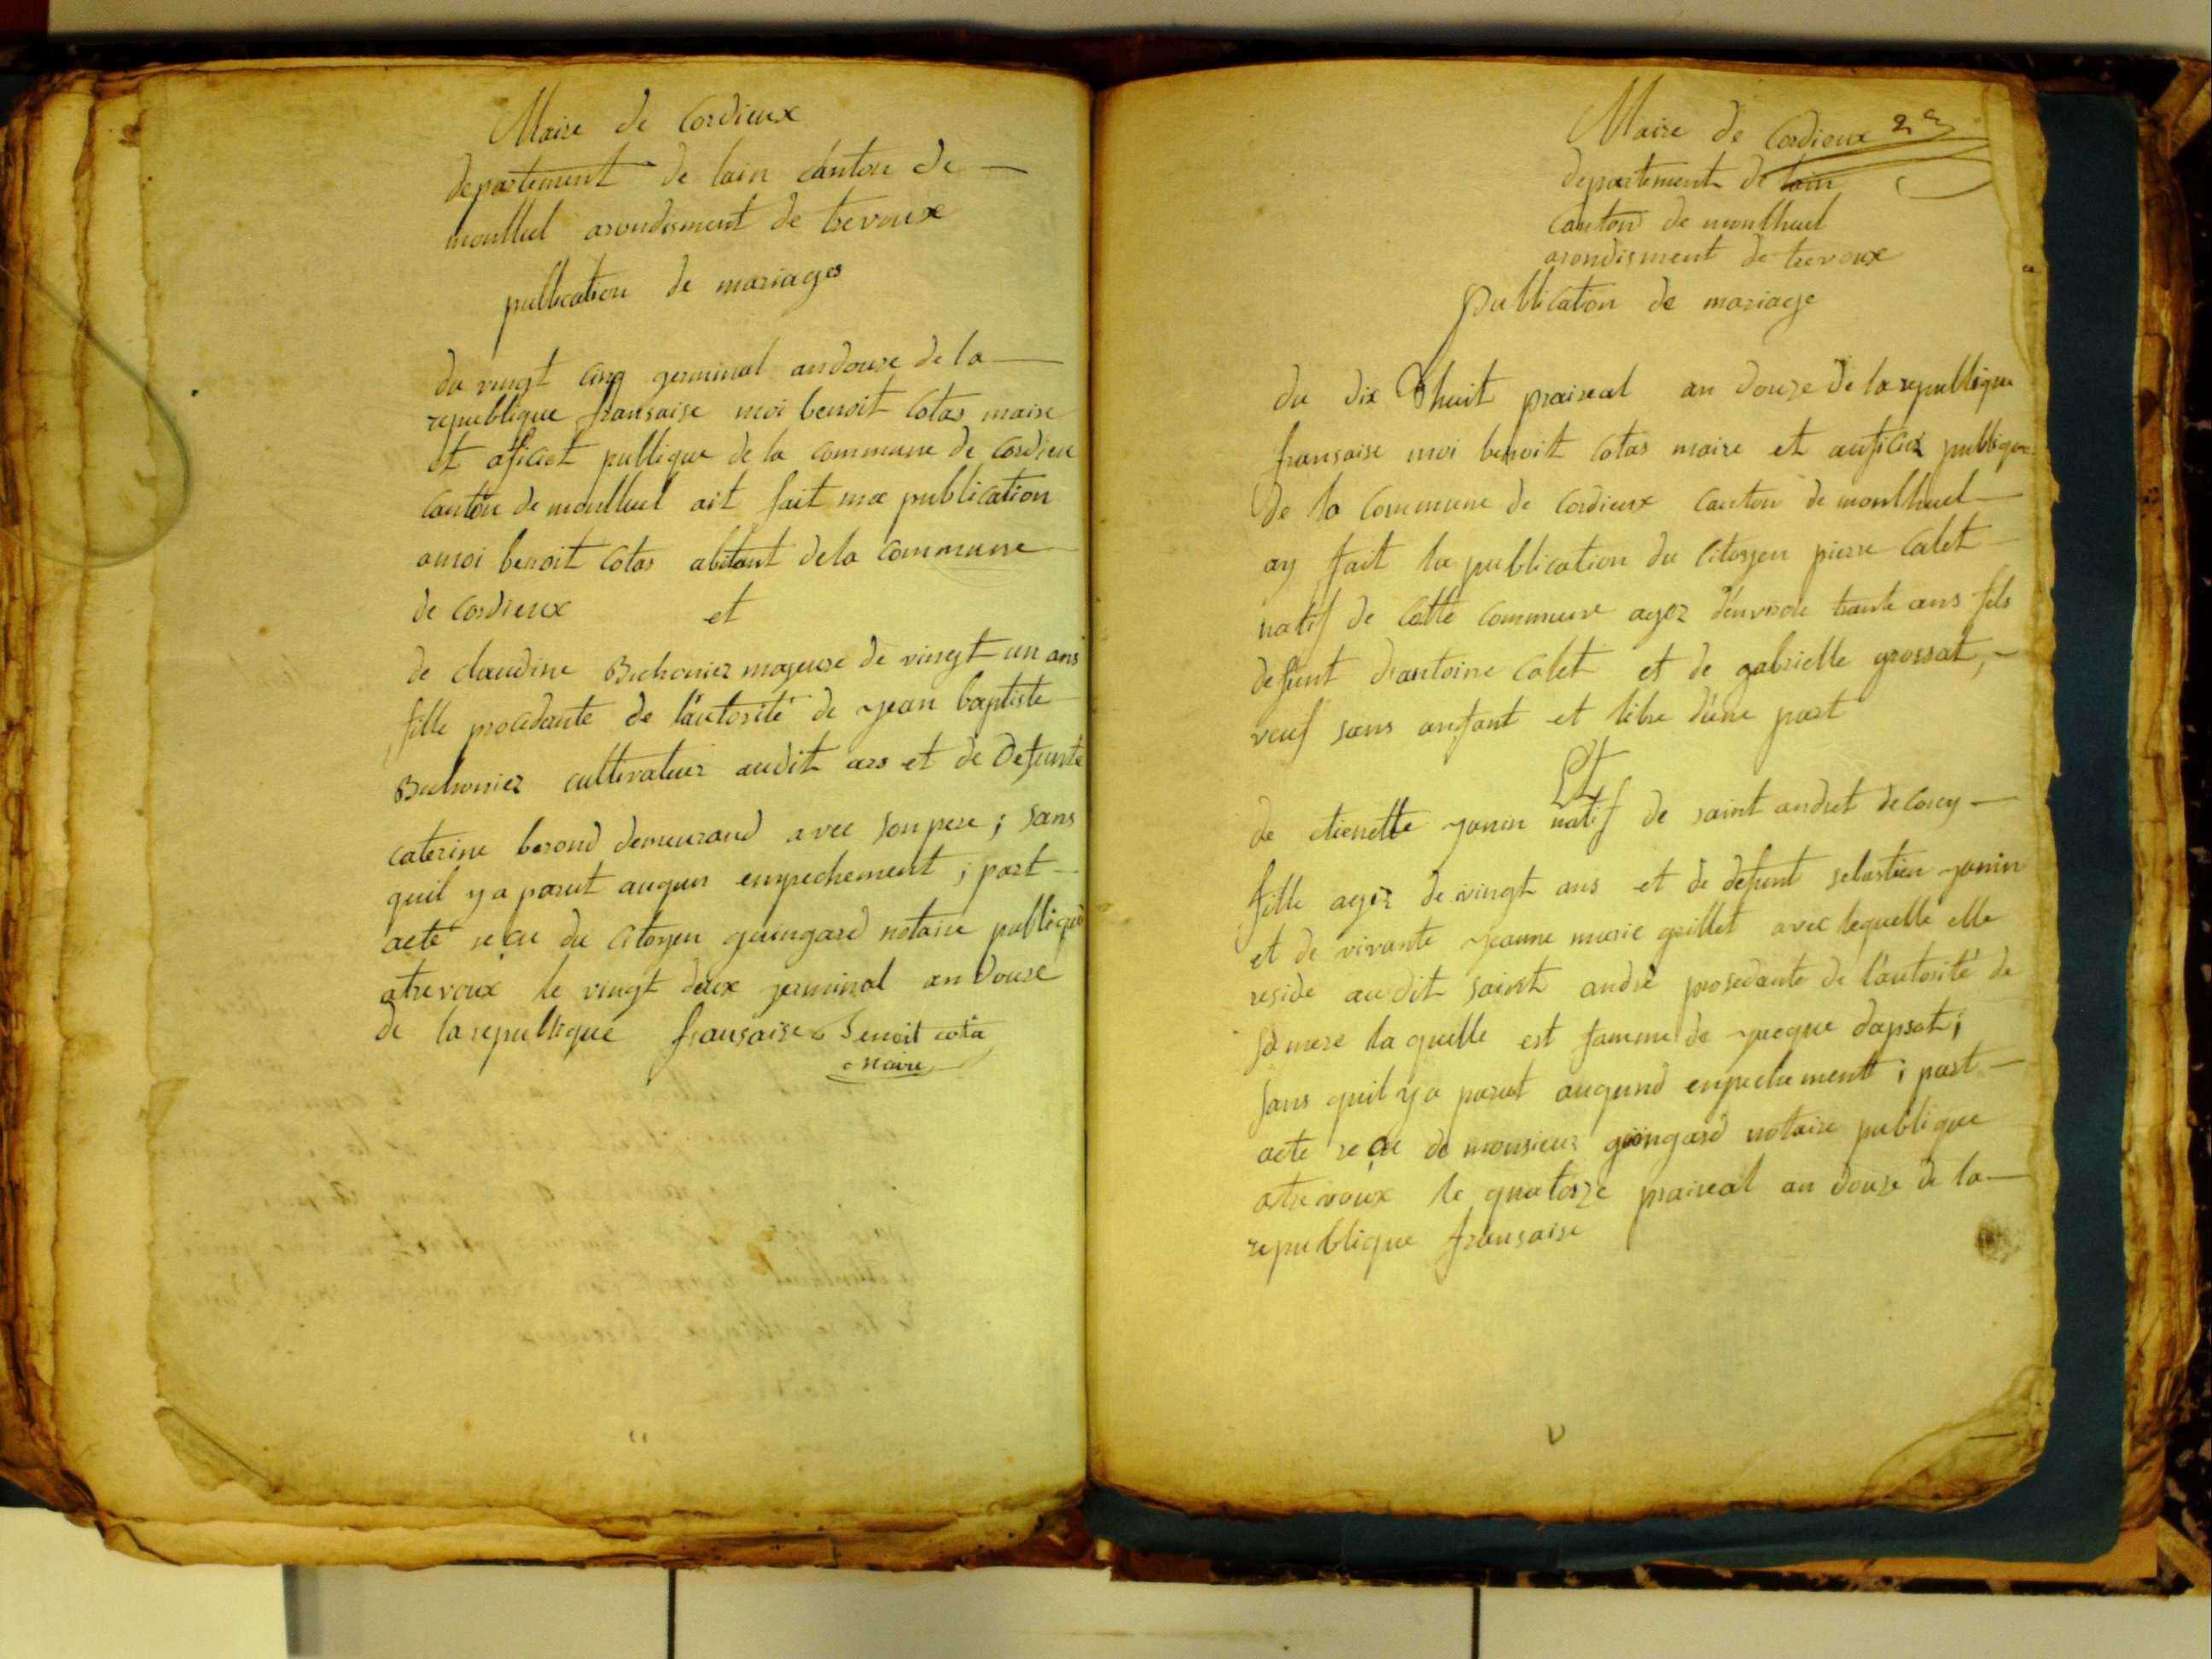 Maire de Cordieux
departement de lain canton de
montluel arondisment de trevoux
publication de mariages
du vingt cinq germinal andouze de la
republique fransaise moi benoit Cotas maire
et oficiet publique de la commune de Cordieu
canton de montluel ait fait ma publication
amoi benoit Cotas abitant dela Commune
de Cordieux et
de claudine Buchonier majeure de vingt un ans
fille procedante de l'autorité de jean baptiste
Buchonier cultivateur audit ars et de Defunte
caterine berond demeurand avec son pere ; sans
quil ya parut augun enpechement ; part
acte recu du Citoyen guingard notaire publique
atrevoux le vingt deux jerminal an Douze
de la republique fransaise Benoit cota
maire
Maire de Cordieux 2
departement de lain
Canton de monthuel
arondisment de trevoux
Publication de mariage
du dix huit praireal an douze de la republique
fransaise moi benoit Cotas maire et auficier publique
De la Commune de Cordieux Canton de monthuel
ay fait la publication du Citoyen pierre Calet
natif de Cette Commune agez d'environ trante ans fils
defunt d'antoine Calet et de gabrielle grossat,
veuf sans anfant et libre d'une part
Et
de etienette janin natif de saint andret de Corcy
fille agez de vingt ans et de defunt sebastien janin
et de vivante jeanne marie grillet avec lequelle elle
reside audit saint andré prosedante de l'autorité de
sa mere laquelle est famme de jacque dapsat ;
sans quil ya parut augund enpechement ; part
acte recu de monsieur guingard notaire publique
atrevoux le quatorze praireal an douze de la
republique fransaise